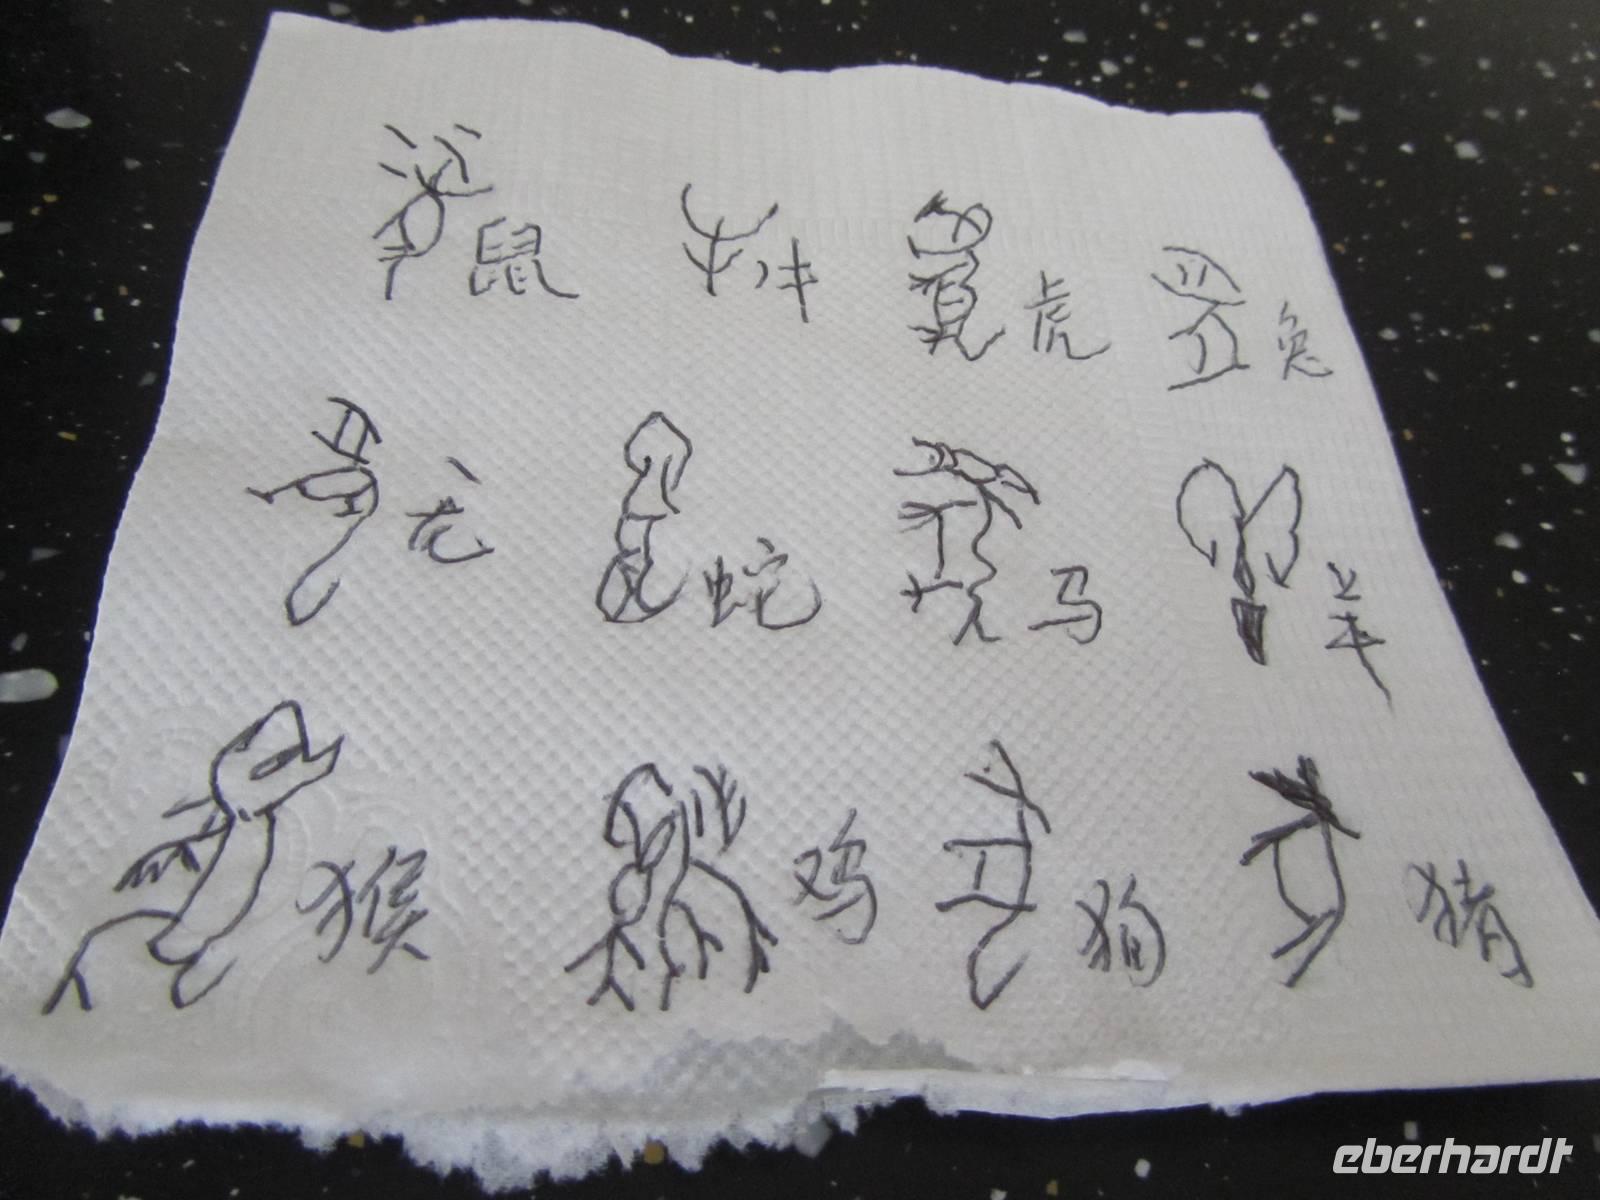 鼠 牛 虎 兔
龙 蛇 马 羊
猴 鸡 狗 猪
eberhardt